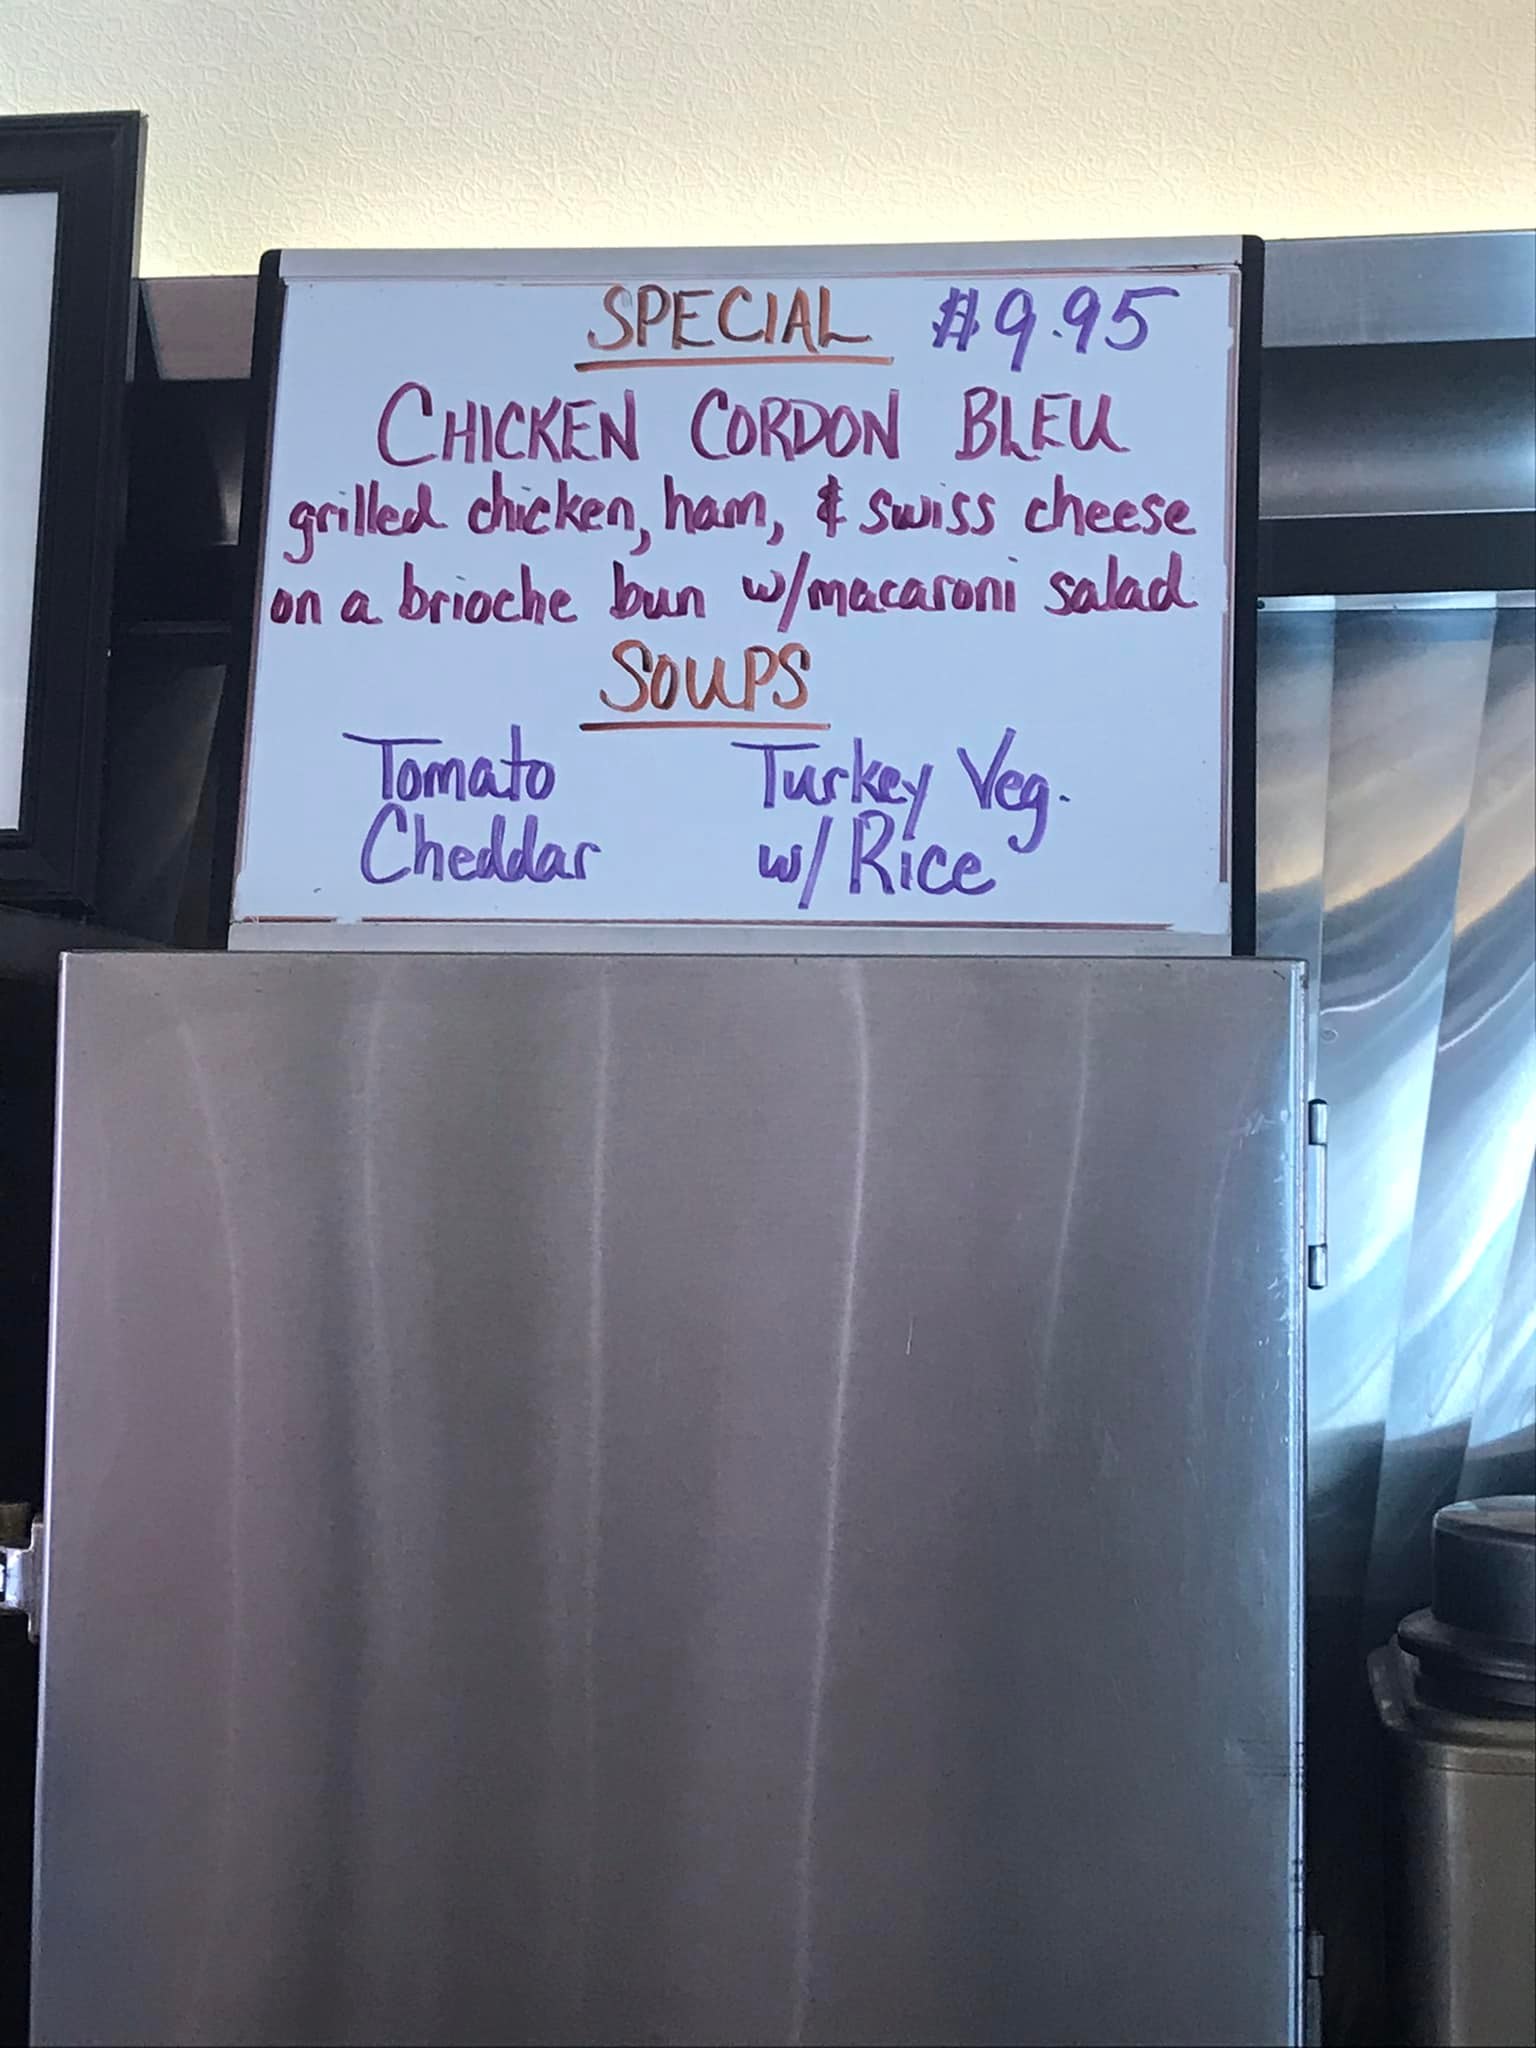 SPECIAL $9.95
CHICKEN CORDON BLEU
grilled chicken, ham, & swiss cheese
on a brioche bun w/macaroni salad
SOUPS
Tomato
Cheddar
Turkey Veg.
w/ Rice